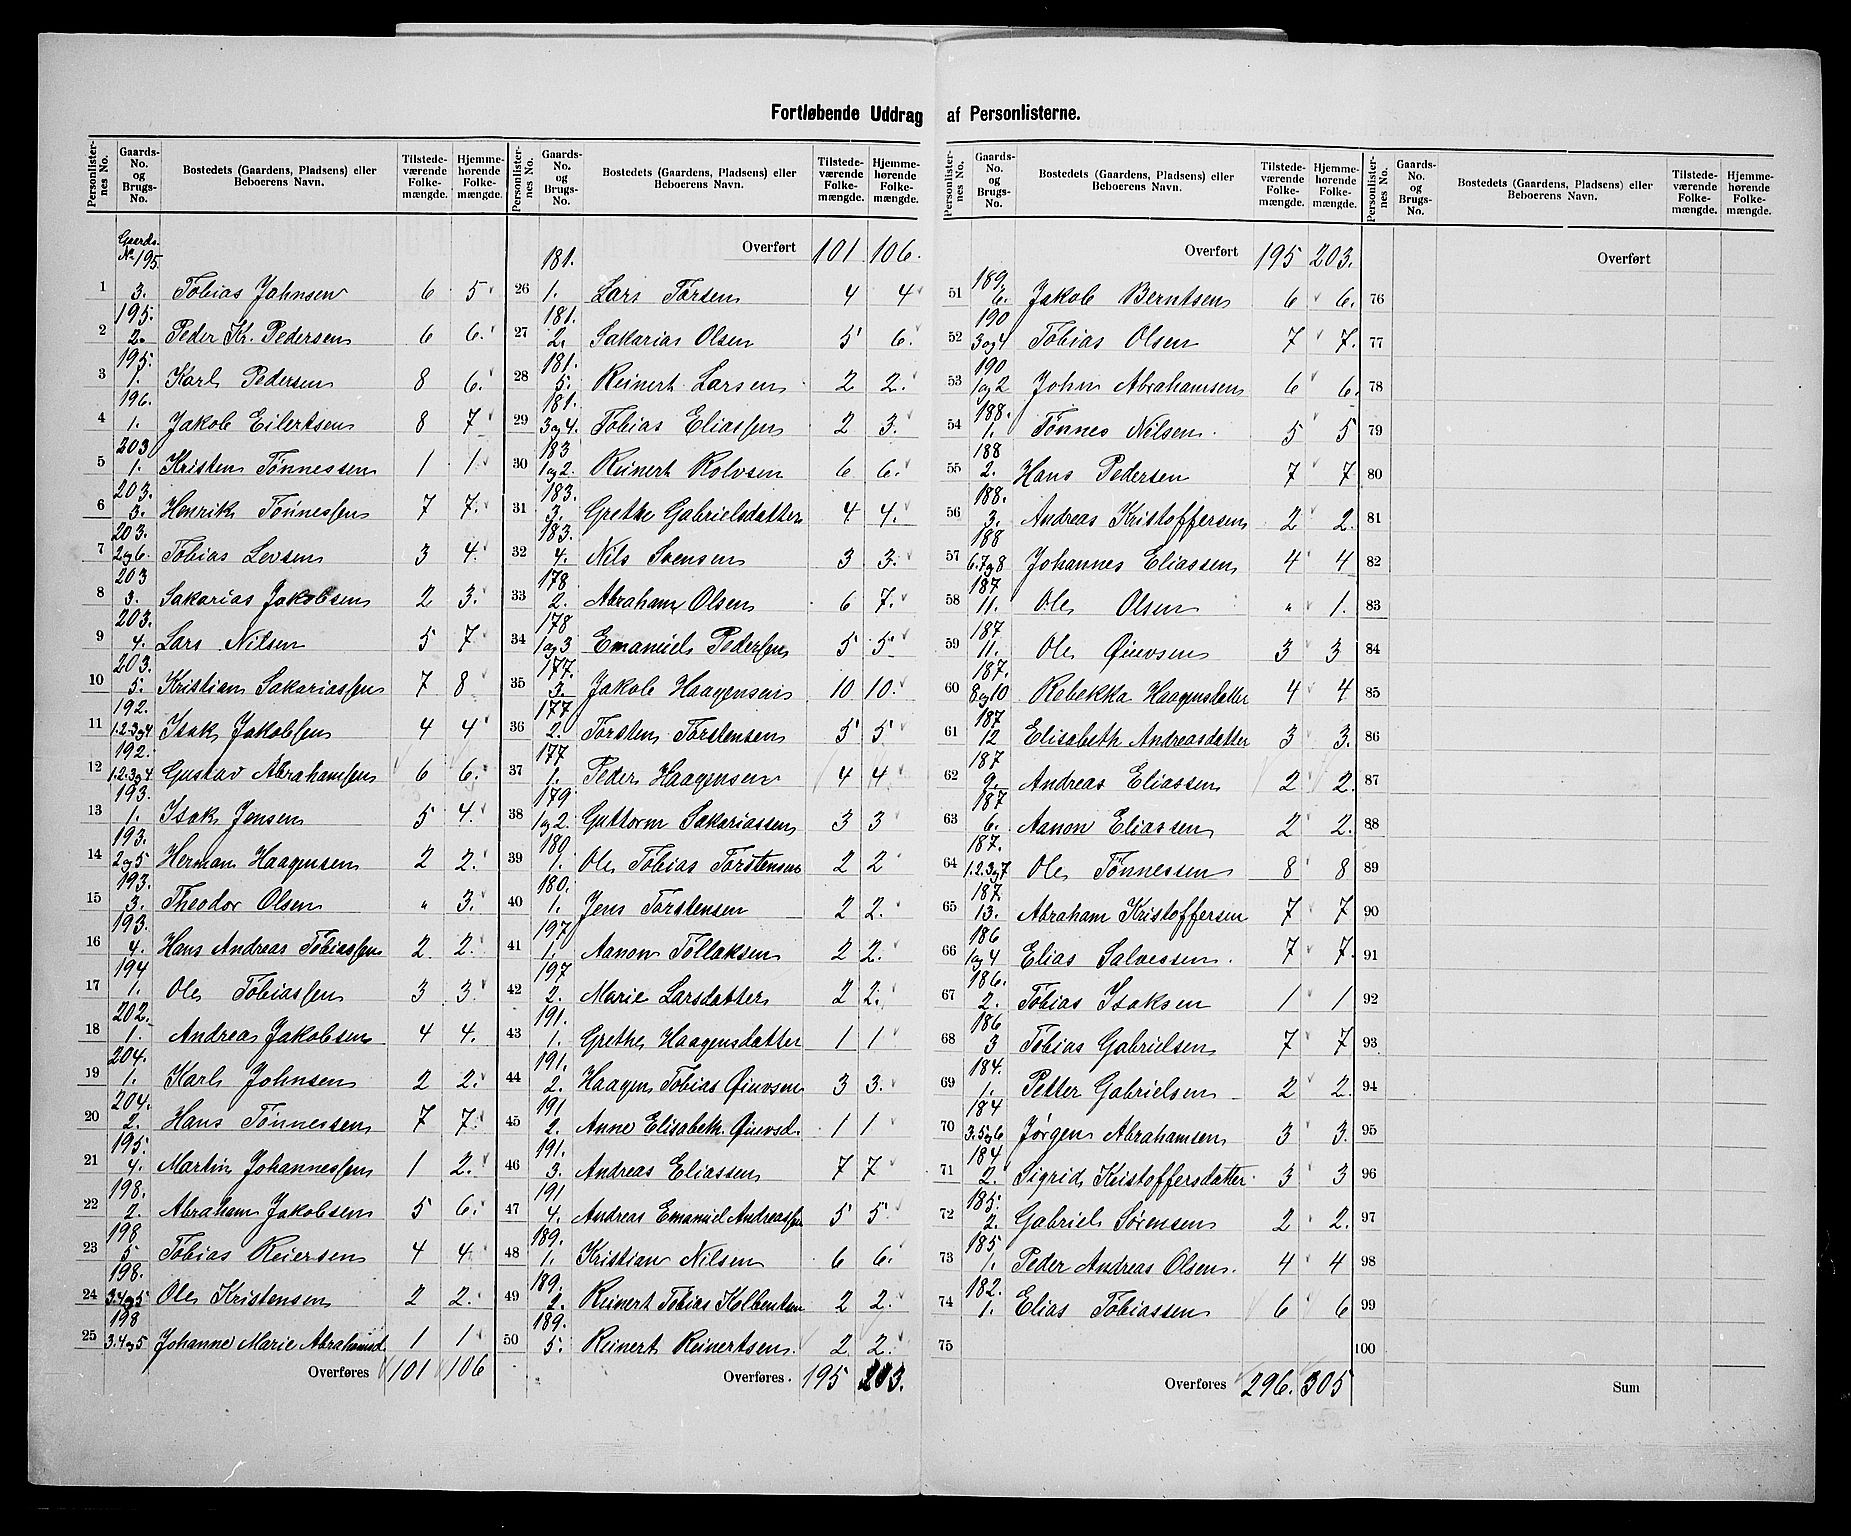 Fortløbende Uddrag af Personlisternes.
Personlister-nes No. | Gaards-No. og Brugs-No. | Bostedets (Gaardens, Pladsens) eller Beboerens Navn. | Tilstede-værende Folke-mængde. | Hjemme-hørende Folke-mængde.
Gaards-No 195.
1 | 3. | Tobias Johnsen | 6 | 5
2 | 195. 2. | Peder Kr. Pedersen | 6 | 6.
3 | 195. 1. | Karl Pedersen | 8 | 6.
4 | 196. 1. | Jakob Eilertsen | 8 | 7
5 | 203 1. | Kristen Tønnessen | 1 | 1
6 | 203. 3. | Henrik Tønnessen | 7 | 7.
7 | 203. 2og6. | Tobias Levsen | 3 | 4.
8 | 203 3. | Sakarias Jakobsen | 2 | 3.
9 | 203. 4. | Lars Nilsen | 5 | 7
10 | 203. 5. | Kristian Sakariassen | 7 | 8
11 | 192. 1.2.3og4 | Isak Jakobsen | 4 | 4
12 | 192. 1.2.3og4 | Gustav Abrahamsen | 6 | 6.
13 | 193. 1. | Isak Jensen | 5 | 4.
14 | 193. 2og5 | Herman Haagensen | 2 | 2.
15 | 193. 3. | Theodor Olsen | " | 3.
16 | 193. 4. | Hans Andreas Tobiassen | 2 | 2.
17 | 194 1. | Ole Tobiassen | 3 | 3.
18 | 202. 1. | Andreas Jakobsen | 4 | 4.
19 | 204. 1. | Karl Johnsen | 2 | 2.
20 | 204. 2. | Hans Tønnessen | 7 | 7.
21 | 195. 4. | Martin Johannessen | 1 | 2.
22 | 198. 2. | Abraham Jakobsen | 5 | 6.
23 | 198 5 | Tobias Reiersen | 4 | 4
24 | 198. 3.4og5 | Ole Kristensen | 2 | 2.
25 | 198 3.4og5 | Johanne Marie Abrahamsd. | 1 | 1
Overføres | 101 | 106
Personlister-nes No. | Gaards-No. og Brugs-No. | Bostedets (Gaardens, Pladsens) eller Beboerens Navn. | Tilstede-værende Folke-mængde. | Hjemme-hørende Folke-mængde.
Overført | 101 | 106.
26 | 181. 1. | Lars Torsen | 4 | 4
27 | 181. 2. | Sakarias Olsen | 5 | 6.
28 | 181. 5. | Reinert Larsen | 2 | 2.
29 | 181. 3og4. | Tobias Eliassen | 2 | 3.
30 | 183 1og2. | Reinert Rolvsen | 6 | 6.
31 | 183. 3. | Grethe Gabrielsdatter | 4 | 4.
32 | 183. 4. | Nils Svensen | 3 | 3.
33 | 178 2. | Abraham Olsen | 6 | 7.
34 | 178 1og3 | Emanuel Pedersen | 5 | 5
35 | 177. 3. | Jakob Haagensen | 10 | 10.
36 | 177 2. | Torsten Torstensen | 5 | 5
37 | 177 1. | Peder Haagensen | 4 | 4
38 | 179 1og2. | Guttorm Sakariassen | 3 | 3
39 | 180 1. | Ole Tobias Torstensen | 2 | 2
40 | 180. 1. | Jens Torstensen | 2 | 2.
41 | 197 1. | Aanon Tollaksen | 2 | 2.
42 | 197 2. | Marie Larsdatter | 2 | 2.
43 | 191. 1. | Grethe Haagensdatter | 1 | 1
44 | 191. 2. | Haagen Tobias Øiuvsen | 3 | 3.
45 | 191 2. | Anne Elisabeth Øiuvsd. | 1 | 1
46 | 191. 3. | Andreas Eliassen | 7 | 7
47 | 191 4. | Andreas Emanuel Andreassen | 5 | 5
48 | 189. 1. | Kristian Nilsen | 6 | 6.
49 | 189. 2. | Reinert Tobias Kolbentsen | 2 | 2.
50 | 189. 5. | Reinert Reinertsen. | 2 | 2.
Overføres | 195 | 203.
Personlister-nes No. | Gaards-No. og Brugs-No. | Bostedets (Gaardens, Pladsens) eller Beboerens Navn. | Tilstede-værende Folke-mængde. | Hjemme-hørende Folke-mængde.
Overført | 195 | 203.
51 | 189 6. | Jakob Berntsen | 6 | 6.
52 | 190 3og4 | Tobias Olsen | 7 | 7.
53 | 190 1og2 | John Abrahamsen | 6 | 6.
54 | 188. 1. | Tønnes Nilsen. | 5 | 5
55 | 188 2. | Hans Pedersen | 7 | 7
56 | 188. 3. | Andreas Kristoffersen | 2 | 2.
57 | 188 6.7og8 | Johannes Eliassen | 4 | 4
58 | 187 11. | Ole Olsen | " | 1.
59 | 187 11. | Ole Øiuvsen | 3 | 3
60 | 187. 8og10 | Rebekka Haagensdatter | 4 | 4
61 | 187 12 | Elisabeth Andreasdatter | 3 | 3.
62 | 187 9. | Andreas Eliassen | 2 | 2.
63 | 187 6. | Aanon Eliassen | 2 | 2.
64 | 187. 1.2.3og7 | Ole Tønnessen | 8 | 8
65 | 187. 13. | Abraham Kristoffersen | 7 | 7
66 | 186 1og4 | Elias Salvessen. | 7 | 7.
67 | 186. 2. | Tobias Isaksen | 1 | 1
68 | 186 3 | Tobias Gabrielsen | 7 | 7
69 | 184. 1. | Petter Gabrielsen | 2 | 2.
70 | 184 3.5og6 | Jørgen Abrahamsen | 3 | 3.
71 | 184 2. | Sigrid Kristoffersdatter | 3 | 3
72 | 185. 2. | Gabriel Sørensen | 2 | 2.
73 | 185 1. | Peder Andreas Olsen. | 4 | 4
74 | 182. 1. | Elias Tobiassen | 6 | 6
75
Overføres | 296. | 305
Personlister-nes No. | Gaards-No. og Brugs-No. | Bostedets (Gaardens, Pladsens) eller Beboerens Navn. | Tilstede-værende Folke-mængde. | Hjemme-hørende Folke-mængde.
Overført
76
77
78
79
80
81
82
83
84
85
86
87
88
89
90
91
92
93
94
95
96
97
98
99
100
Sum